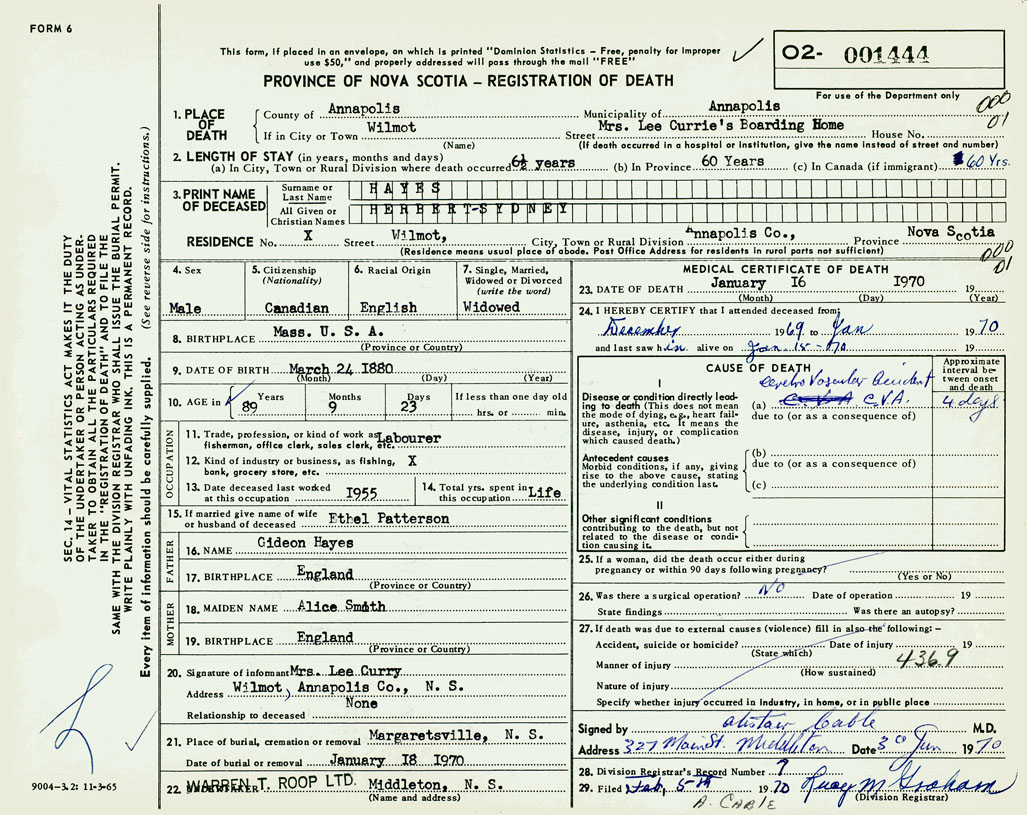 FORM 6
This form, if placed in an envelope, on which is printed "Dominion Statistics – Free, penalty for improper
use $50," and properly addressed will pass through the mail "FREE"
O2- 001444
PROVINCE OF NOVA SCOTIA – REGISTRATION OF DEATH
For use of the Department only
000
01
1. PLACE OF DEATH
County of Annapolis Municipality of Annapolis
If in City or Town Wilmot Street Mrs. Lee Currie's Boarding Home House No.
(Name) (If death occurred in a hospital or institution, give the name instead of street and number)
2. LENGTH OF STAY (in years, months and days)
(a) In City, Town or Rural Division where death occurred 6½ years (b) In Province 60 Years (c) In Canada (if immigrant) 60 Yrs.
3. PRINT NAME OF DECEASED
Surname or Last Name HAYES
All Given or Christian Names HERBERT-SYDNEY
RESIDENCE No. X Street Wilmot, City, Town or Rural Division Annapolis Co., Province Nova Scotia
(Residence means usual place of abode. Post Office Address for residents in rural parts not sufficient)
000
01
4. Sex
Male
5. Citizenship
(Nationality)
Canadian
6. Racial Origin
English
7. Single, Married,
Widowed or Divorced
(write the word)
Widowed
8. BIRTHPLACE Mass. U. S. A.
(Province or Country)
9. DATE OF BIRTH March 24 1880
(Month) (Day) (Year)
10. AGE in Years Months Days If less than one day old
89 9 23 hrs. or min.
OCCUPATION
11. Trade, profession, or kind of work as Labourer
fisherman, office clerk, sales clerk, etc.
12. Kind of industry or business, as fishing, X
bank, grocery store, etc.
13. Date deceased last worked
at this occupation I955
14. Total yrs. spent in
this occupation Life
15. If married give name of wife
or husband of deceased Ethel Patterson
FATHER
16. NAME Gideon Hayes
17. BIRTHPLACE England
(Province or Country)
MOTHER
18. MAIDEN NAME Alice Smith
19. BIRTHPLACE England
(Province or Country)
20. Signature of informant Mrs. Lee Curry
Address Wilmot, Annapolis Co., N. S.
Relationship to deceased None
21. Place of burial, cremation or removal Margaretsville, N. S.
Date of burial or removal January I8 I970
22. WARREN T. ROOP LTD. Middleton, N. S.
(Name and address)
MEDICAL CERTIFICATE OF DEATH
23. DATE OF DEATH January I6 I970 19
(Month) (Day) (Year)
24. I HEREBY CERTIFY that I attended deceased from:
December 1969 to Jan 1970
and last saw him alive on Jan 15-70 19
CAUSE OF DEATH
Approximate
interval be-
tween onset
and death
I
Disease or condition directly lead-
ing to death (This does not mean
the mode of dying, e.g., heart fail-
ure, asthenia, etc. It means the
disease, injury, or complication
which caused death.)
Cerebro Vascular Accident
(a) C.V.A C.V.A. 4 days
due to (or as a consequence of)
Antecedent causes
Morbid conditions, if any, giving
rise to the above cause, stating
the underlying condition last.
(b)
due to (or as a consequence of)
(c)
II
Other significant conditions
contributing to the death, but not
related to the disease or condi-
tion causing it.
25. If a woman, did the death occur either during
pregnancy or within 90 days following pregnancy?
(Yes or No)
26. Was there a surgical operation? NO Date of operation 19
State findings Was there an autopsy?
27. If death was due to external causes (violence) fill in also the following: –
Accident, suicide or homicide? Date of injury 19
(State which)
Manner of injury 436.9
(How sustained)
Nature of injury
Specify whether injury occurred in industry, in home, or in public place
Signed by Alistair Cable M.D.
Address 327 Main St. Middleton Date 30 Jan 1970
28. Division Registrar's Record Number 7
29. Filed Feb, 5th 1970 Lucy M Graham
(Division Registrar)
A. CABLE
SEC. 14 – VITAL STATISTICS ACT MAKES IT THE DUTY
OF THE UNDERTAKER OR PERSON ACTING AS UNDER-
TAKER TO OBTAIN ALL THE PARTICULARS REQUIRED
IN THE "REGISTRATION OF DEATH" AND TO FILE THE
SAME WITH THE DIVISION REGISTRAR WHO SHALL ISSUE THE BURIAL PERMIT.
WRITE PLAINLY WITH UNFADING INK. THIS IS A PERMANENT RECORD.
Every item of information should be carefully supplied. (See reverse side for instructions.)
9004-3.2: 11-3-65